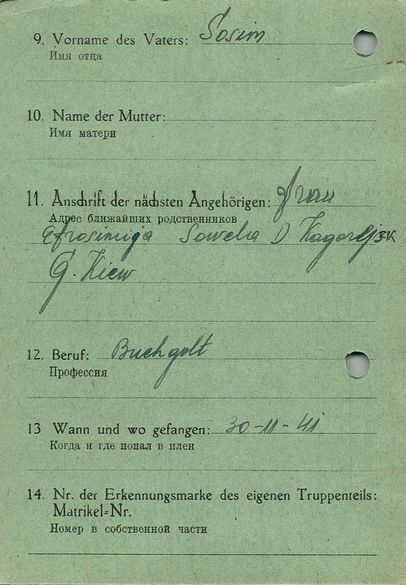 9. Vorname des Vaters: Sosim
Имя отца
10. Name der Mutter:
Имя матери
11. Anschrift der nächsten Angehörigen: Frau
Адрес ближайших родственников
Efrosiniga Sawcha D
G. Kiew
12. Beruf: Buchgolt
Профессия
13 Wann und wo gefangen: 30-11-41
Когда и где попал в плен
14. Nr. der Erkennungsmarke des eigenen Truppenteils:
Matrikel-Nr.
Номер в собственной части